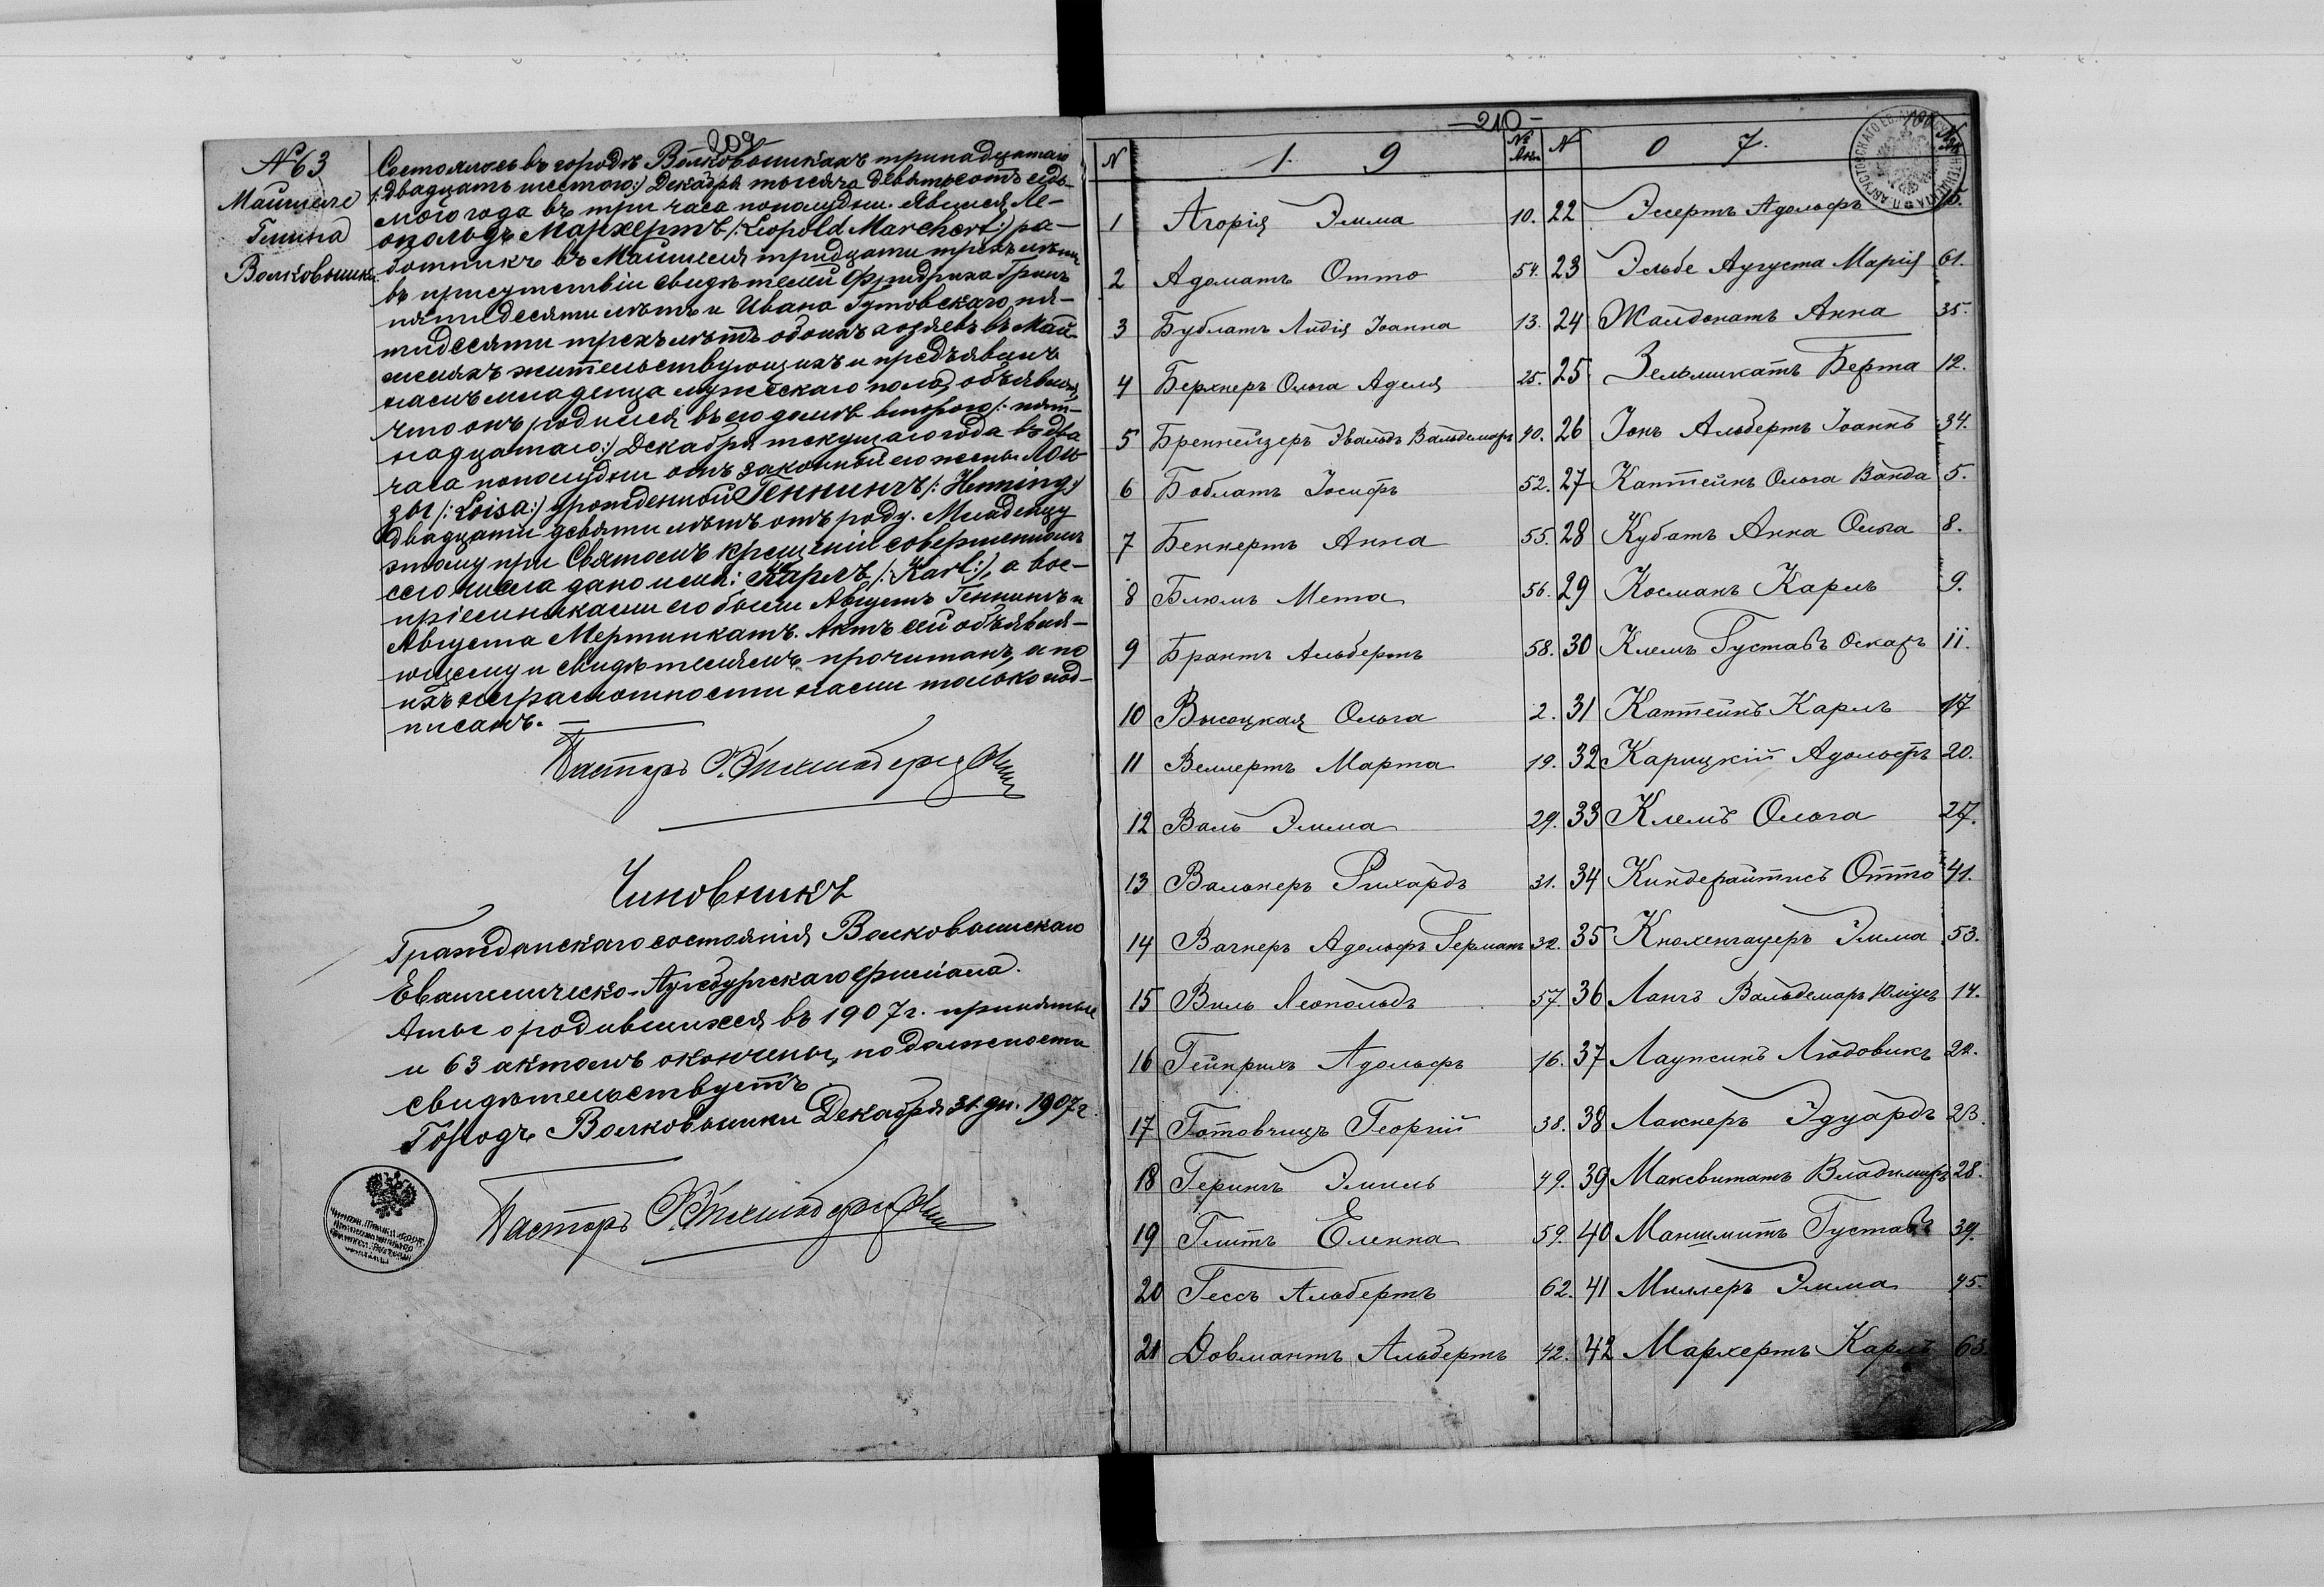 209
№ 63
Майшеле
Гмина
Волковышки
Состоялось въ городѣ Волковышкахъ тринадцатаго
/: двадцать шестого :/ Декабря тысяча девятьсотъ седь-
мого года въ три часа пополудни. Явился Ле-
опольдъ Мархертъ /: Leopold Marchert :/ ра-
ботникъ въ Майшеля тридцати трехъ лѣтъ
въ присутствіи свидѣтелей Фридриха Гринъ
пятидесяти лѣтъ и Ивана Гутовскаго пя-
тидесяти трехъ лѣтъ обоихъ въ Май-
шеляхъ жительствующихъ и предъявилъ
намъ младенца мужескаго пола, объявляя,
что онъ родился въ его домѣ второго /: пят-
надцатаго :/ Декабря текущаго года въ два
часа пополудни отъ законной его жены Лои-
зы /: Loisa :/ урожденной Геннингъ /: Henning :/
двадцати девяти лѣтъ отъ роду. Младенцу
этому при Святомъ крещеніи совершенномъ
сего числа дано имя: Карлъ /: Karl :/, а вос-
пріемниками его были Августъ Геннингъ и
Августа Мертинкатъ. Актъ сей объявля-
ющему и свидѣтелямъ прочитанъ, а по
ихъ неграмотности нами только под-
писанъ. —
Пасторъ
Чиновникъ
Гражданскаго состоянія Волковышскаго
Евангелическо-Аугсбургскаго филіала.
Акты о родившихся въ 1907 г. принятые
и 63 актомъ окончены, по должности
свидѣтельствуетъ
Городъ Волковышки Декабря 31 дн. 1907 г.
Пасторъ
— 210 —
N 1 9 № Акт. N 0 7. № Акт.
1 Агорія Эмма 10.
2 Адоматъ Отто 54.
3 Бублатъ Лидія Іоанна 13.
4 Берхнеръ Ольга Аделя 25.
5 Бреннейзеръ Эвальдъ Вальдемаръ 40.
6 Боблатъ Іосифъ 52.
7 Беккертъ Анна 55.
8 Блюмъ Мета 56.
9 Брантъ Альбертъ 58.
10 Высоцкая Ольга 2.
11 Веллертъ Марта 19.
12 Валь Эмма 29.
13 Валькеръ Рихардъ 31.
14 Вагнеръ Адольфъ Германъ 32.
15 Виль Леопольдъ 57.
16 Гейнрихъ Адольфъ 16.
17 Готовчицъ Георгій 38.
18 Герингъ Эмиль 49.
19 Глитъ Еленна 59.
20 Гессъ Альбертъ 62.
21 Довмантъ Альбертъ 42.
22 Эггертъ Адольфъ 15.
23 Эльбе Аугуста Марія 61.
24 Жалдокатъ Анна 35.
25 Зельмикатъ Берта 12.
26 Іонъ Альбертъ Іоаннъ 34.
27 Каптейнъ Ольга Ванда 5.
28 Кубатъ Анна Ольга 8.
29 Косманъ Карлъ 9.
30 Клемъ Густавъ Оскаръ 11.
31 Каптейнъ Карлъ 17
32 Карицкій Адольфъ 20.
33 Клемъ Ольга 27.
34 Киндерайтисъ Отто 41.
35 Кнохенгауеръ Эмма 53.
36 Лангъ Вальдемаръ Юліусъ 14.
37 Лаупсинъ Людовикъ 22.
38 Лакнеръ Эдуардъ 23.
39 Максвитатъ Владимиръ 28.
40 Маншмитъ Густавъ 39.
41 Миллеръ Эмма 45.
42 Мархертъ Карлъ 63.